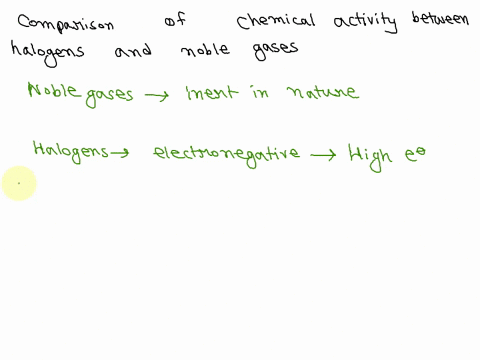 Comparison of chemical activity between
halogens and noble gases
Noble gases → Inert in nature
Halogens → electronegative → High e⊖